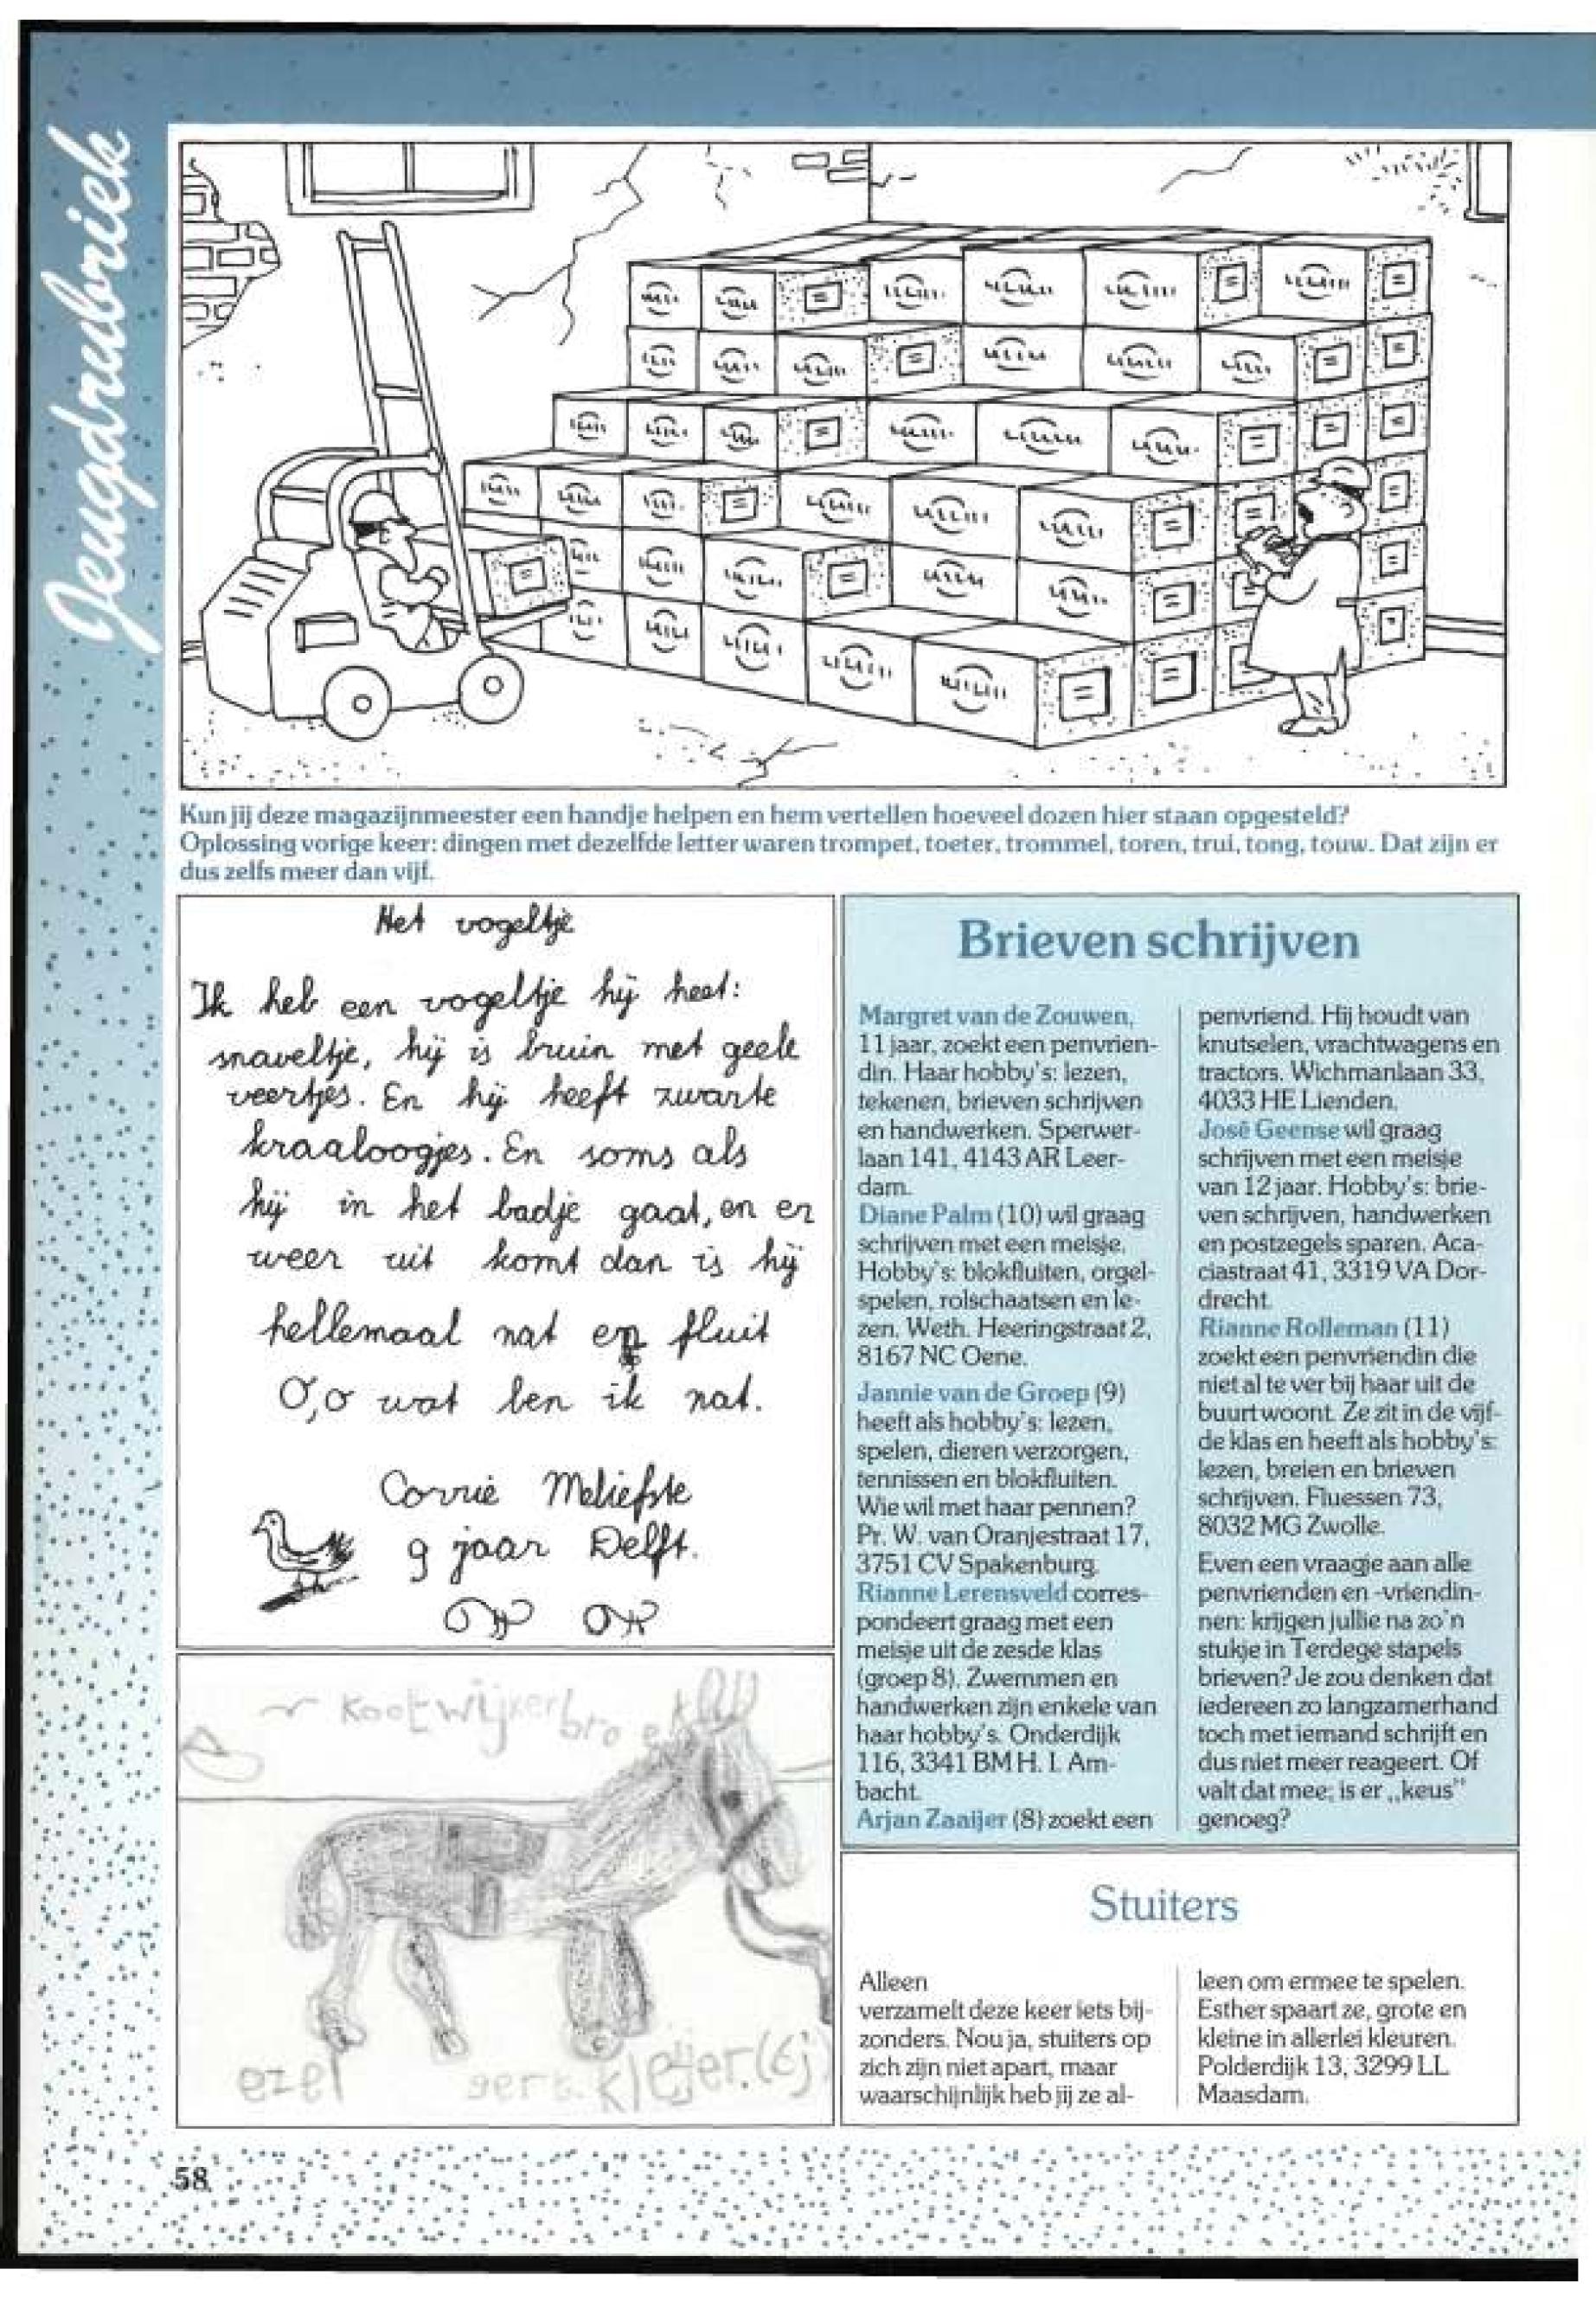 Jeugdrubriek
Kun jij deze magazijnmeester een handje helpen en hem vertellen hoeveel dozen hier staan opgesteld?
Oplossing vorige keer: dingen met dezelfde letter waren trompet, toeter, trommel, toren, trui, tong, touw. Dat zijn er
dus zelfs meer dan vijf.
Het vogeltje
Ik heb een vogeltje hij heet:
snaveltje, hij is bruin met geele
veertjes. En hij heeft zwarte
kraaloogjes. En soms als
hij in het badje gaat, en er
weer uit komt dan is hij
hellemaal nat en fluit
O, o wat ben ik nat.
Corrie Meliefste
9 jaar Delft.
Kootwijkerbroek
ezel
kleijer. (6j)
Brieven schrijven
Margret van de Zouwen,
11 jaar, zoekt een penvrien-
din. Haar hobby's: lezen,
tekenen, brieven schrijven
en handwerken. Sperwer-
laan 141, 4143 AR Leer-
dam.
Diane Palm (10) wil graag
schrijven met een meisje.
Hobby's: blokfluiten, orgel-
spelen, rolschaatsen en le-
zen. Weth. Heeringstraat 2,
8167 NC Oene.
Jannie van de Groep (9)
heeft als hobby's: lezen,
spelen, dieren verzorgen,
tennissen en blokfluiten.
Wie wil met haar pennen?
Pr. W. van Oranjestraat 17,
3751 CV Spakenburg.
Rianne Lerensveld corres-
pondeert graag met een
meisje uit de zesde klas
(groep 8). Zwemmen en
handwerken zijn enkele van
haar hobby's. Onderdijk
116, 3341 BM H. I. Am-
bacht.
Arjan Zaaijer (8) zoekt een
penvriend. Hij houdt van
knutselen, vrachtwagens en
tractors. Wichmanlaan 33,
4033 HE Lienden.
José Geense wil graag
schrijven met een meisje
van 12 jaar. Hobby's: brie-
ven schrijven, handwerken
en postzegels sparen. Aca-
ciastraat 41, 3319 VA Dor-
drecht.
Rianne Rolleman (11)
zoekt een penvriendin die
niet al te ver bij haar uit de
buurt woont. Ze zit in de vijf-
de klas en heeft als hobby's:
lezen, breien en brieven
schrijven. Fluessen 73,
8032 MG Zwolle.
Even een vraagje aan alle
penvrienden en -vriendin-
nen: krijgen jullie na zo'n
stukje in Terdege stapels
brieven? Je zou denken dat
iedereen zo langzamerhand
toch met iemand schrijft en
dus niet meer reageert. Of
valt dat mee; is er „keus"
genoeg?
Stuiters
Alleen
verzamelt deze keer iets bij-
zonders. Nou ja, stuiters op
zich zijn niet apart, maar
waarschijnlijk heb jij ze al-
leen om ermee te spelen.
Esther spaart ze, grote en
kleine in allerlei kleuren.
Polderdijk 13, 3299 LL
Maasdam.
58